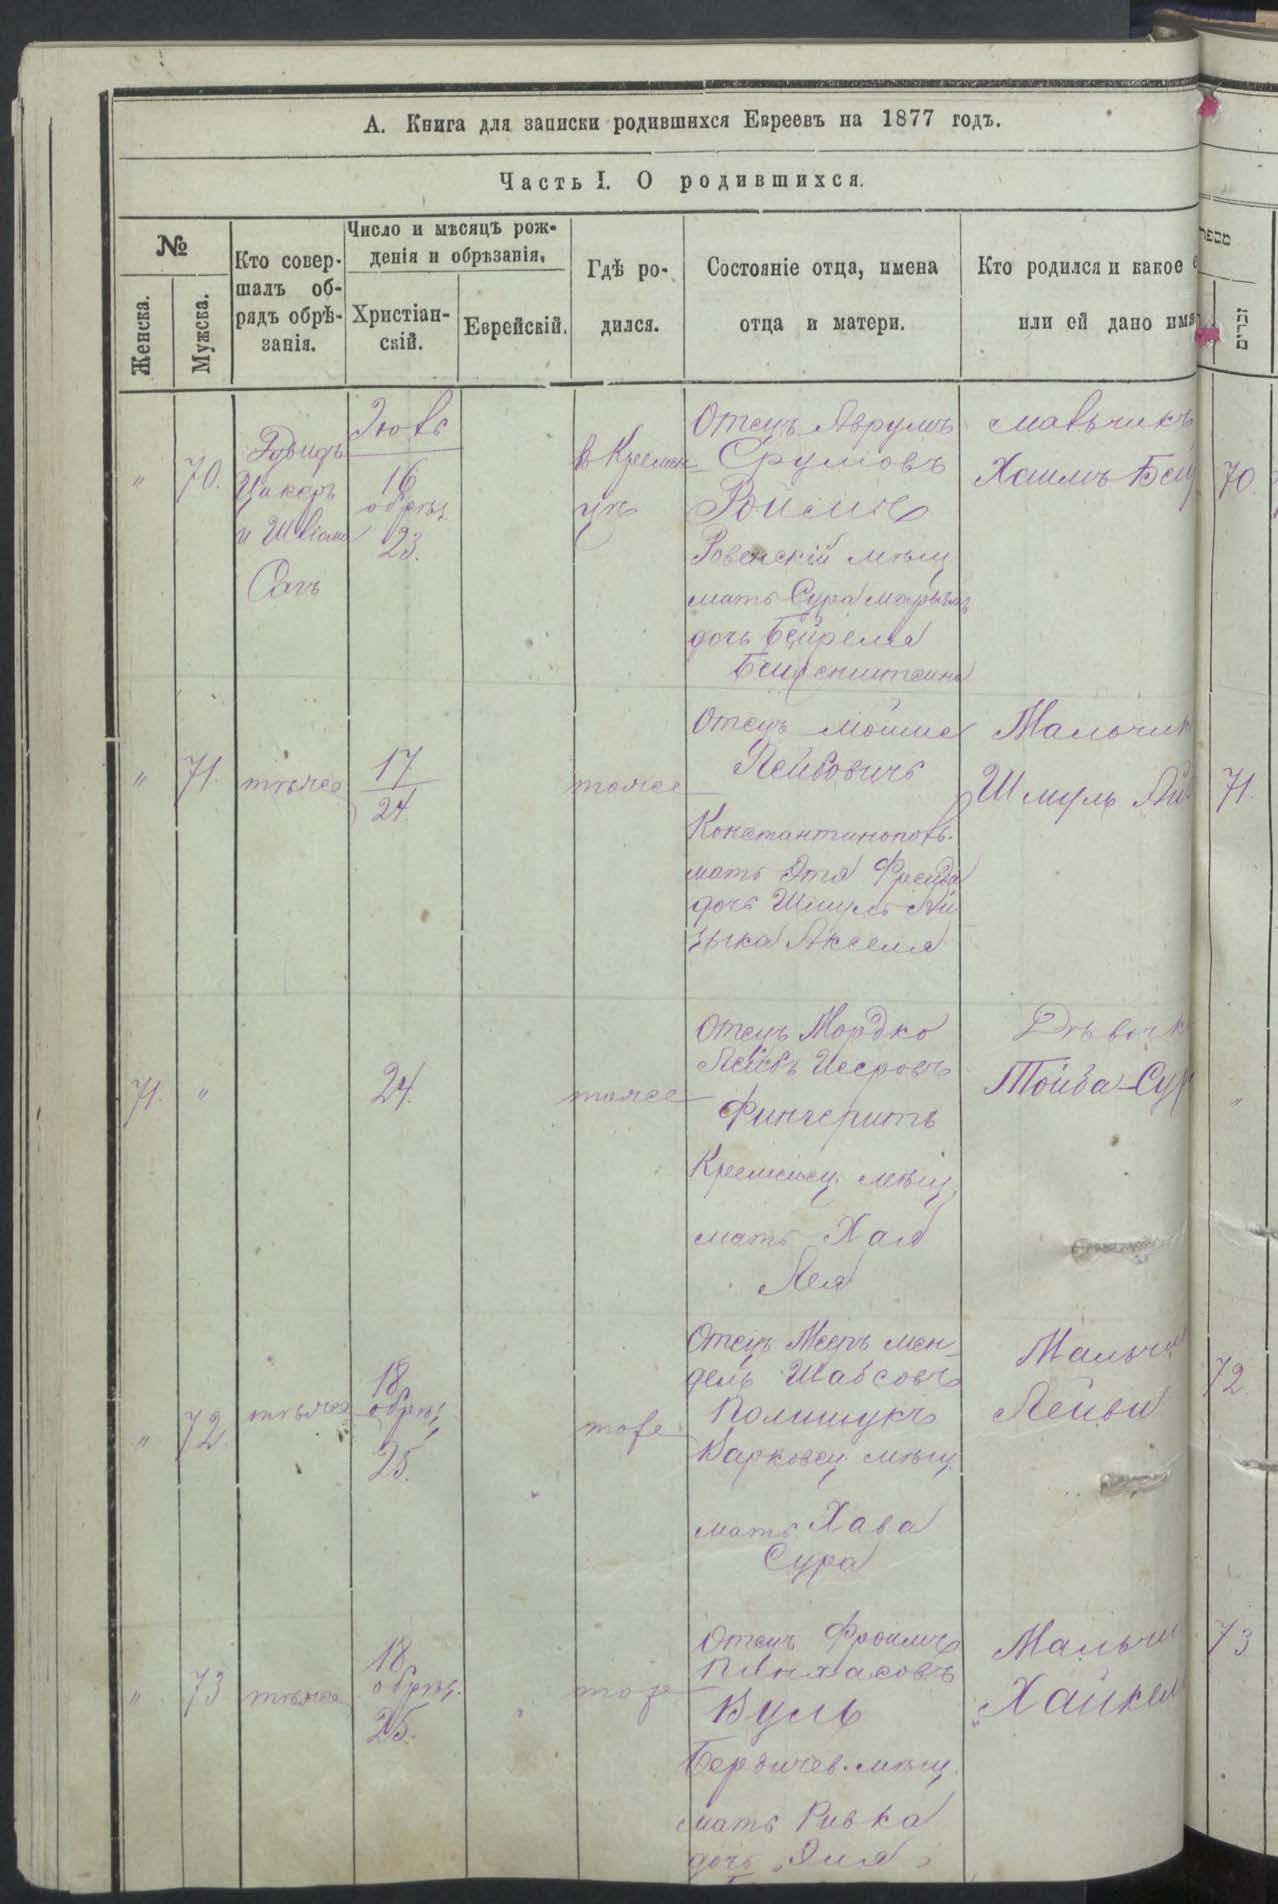 А. Книга для записки родившихся Евреевъ на 1877 годъ.
Часть I. О родившихся.
№
Женска.
Мужска.
Кто совер-
шалъ об-
рядъ обрѣ-
занія.
Число и мѣсяцъ рож-
денія и обрѣзанія.
Христіан-
скій.
Еврейскій.
Гдѣ ро-
дился.
Состояніе отца, имена
отца и матери.
Кто родился и какое
или ей дано имя
מספר
זכרים
"
70.
и
Сагъ
16
обрѣз.
23.
в Кремен
цѣ
Отецъ Аврумъ
Срумовъ
Ройсис
Ровенскій мѣщ
мать Сура Марьямъ
дочь Бейреля
мальчикъ
Хаимъ Бей
70.
"
71.
тѣже
17
24.
тоже
Отецъ Мойше
Лейбовичъ
Константинополь.
мать Этя Фрейда
дочь Шмуль Ай
зыка Акселя
Мальчик
Шмуль Ай
71.
71.
"
24.
тоже
Отецъ Мордко
Лейбъ Исеровъ
Фингерить
Кременец. мѣщ.
мать Хая
Лея
Дѣвочк
Тойба-Сур
"
"
72.
тѣже
18
обрѣз.
25.
тоже
Отецъ Мееръ Мен
дель Шабсовъ
Полищукъ
Барковец. мѣщ.
мать Хава
Сура
Мальчи
Лейви
72.
"
73.
тѣже
18
обрѣз.
25.
тоже
Отецъ Фроимъ
Пинхасовъ
Вуль
Бердичев. мѣщ.
мать Ривка
дочь Эля
Мальчи
Хайкел
73